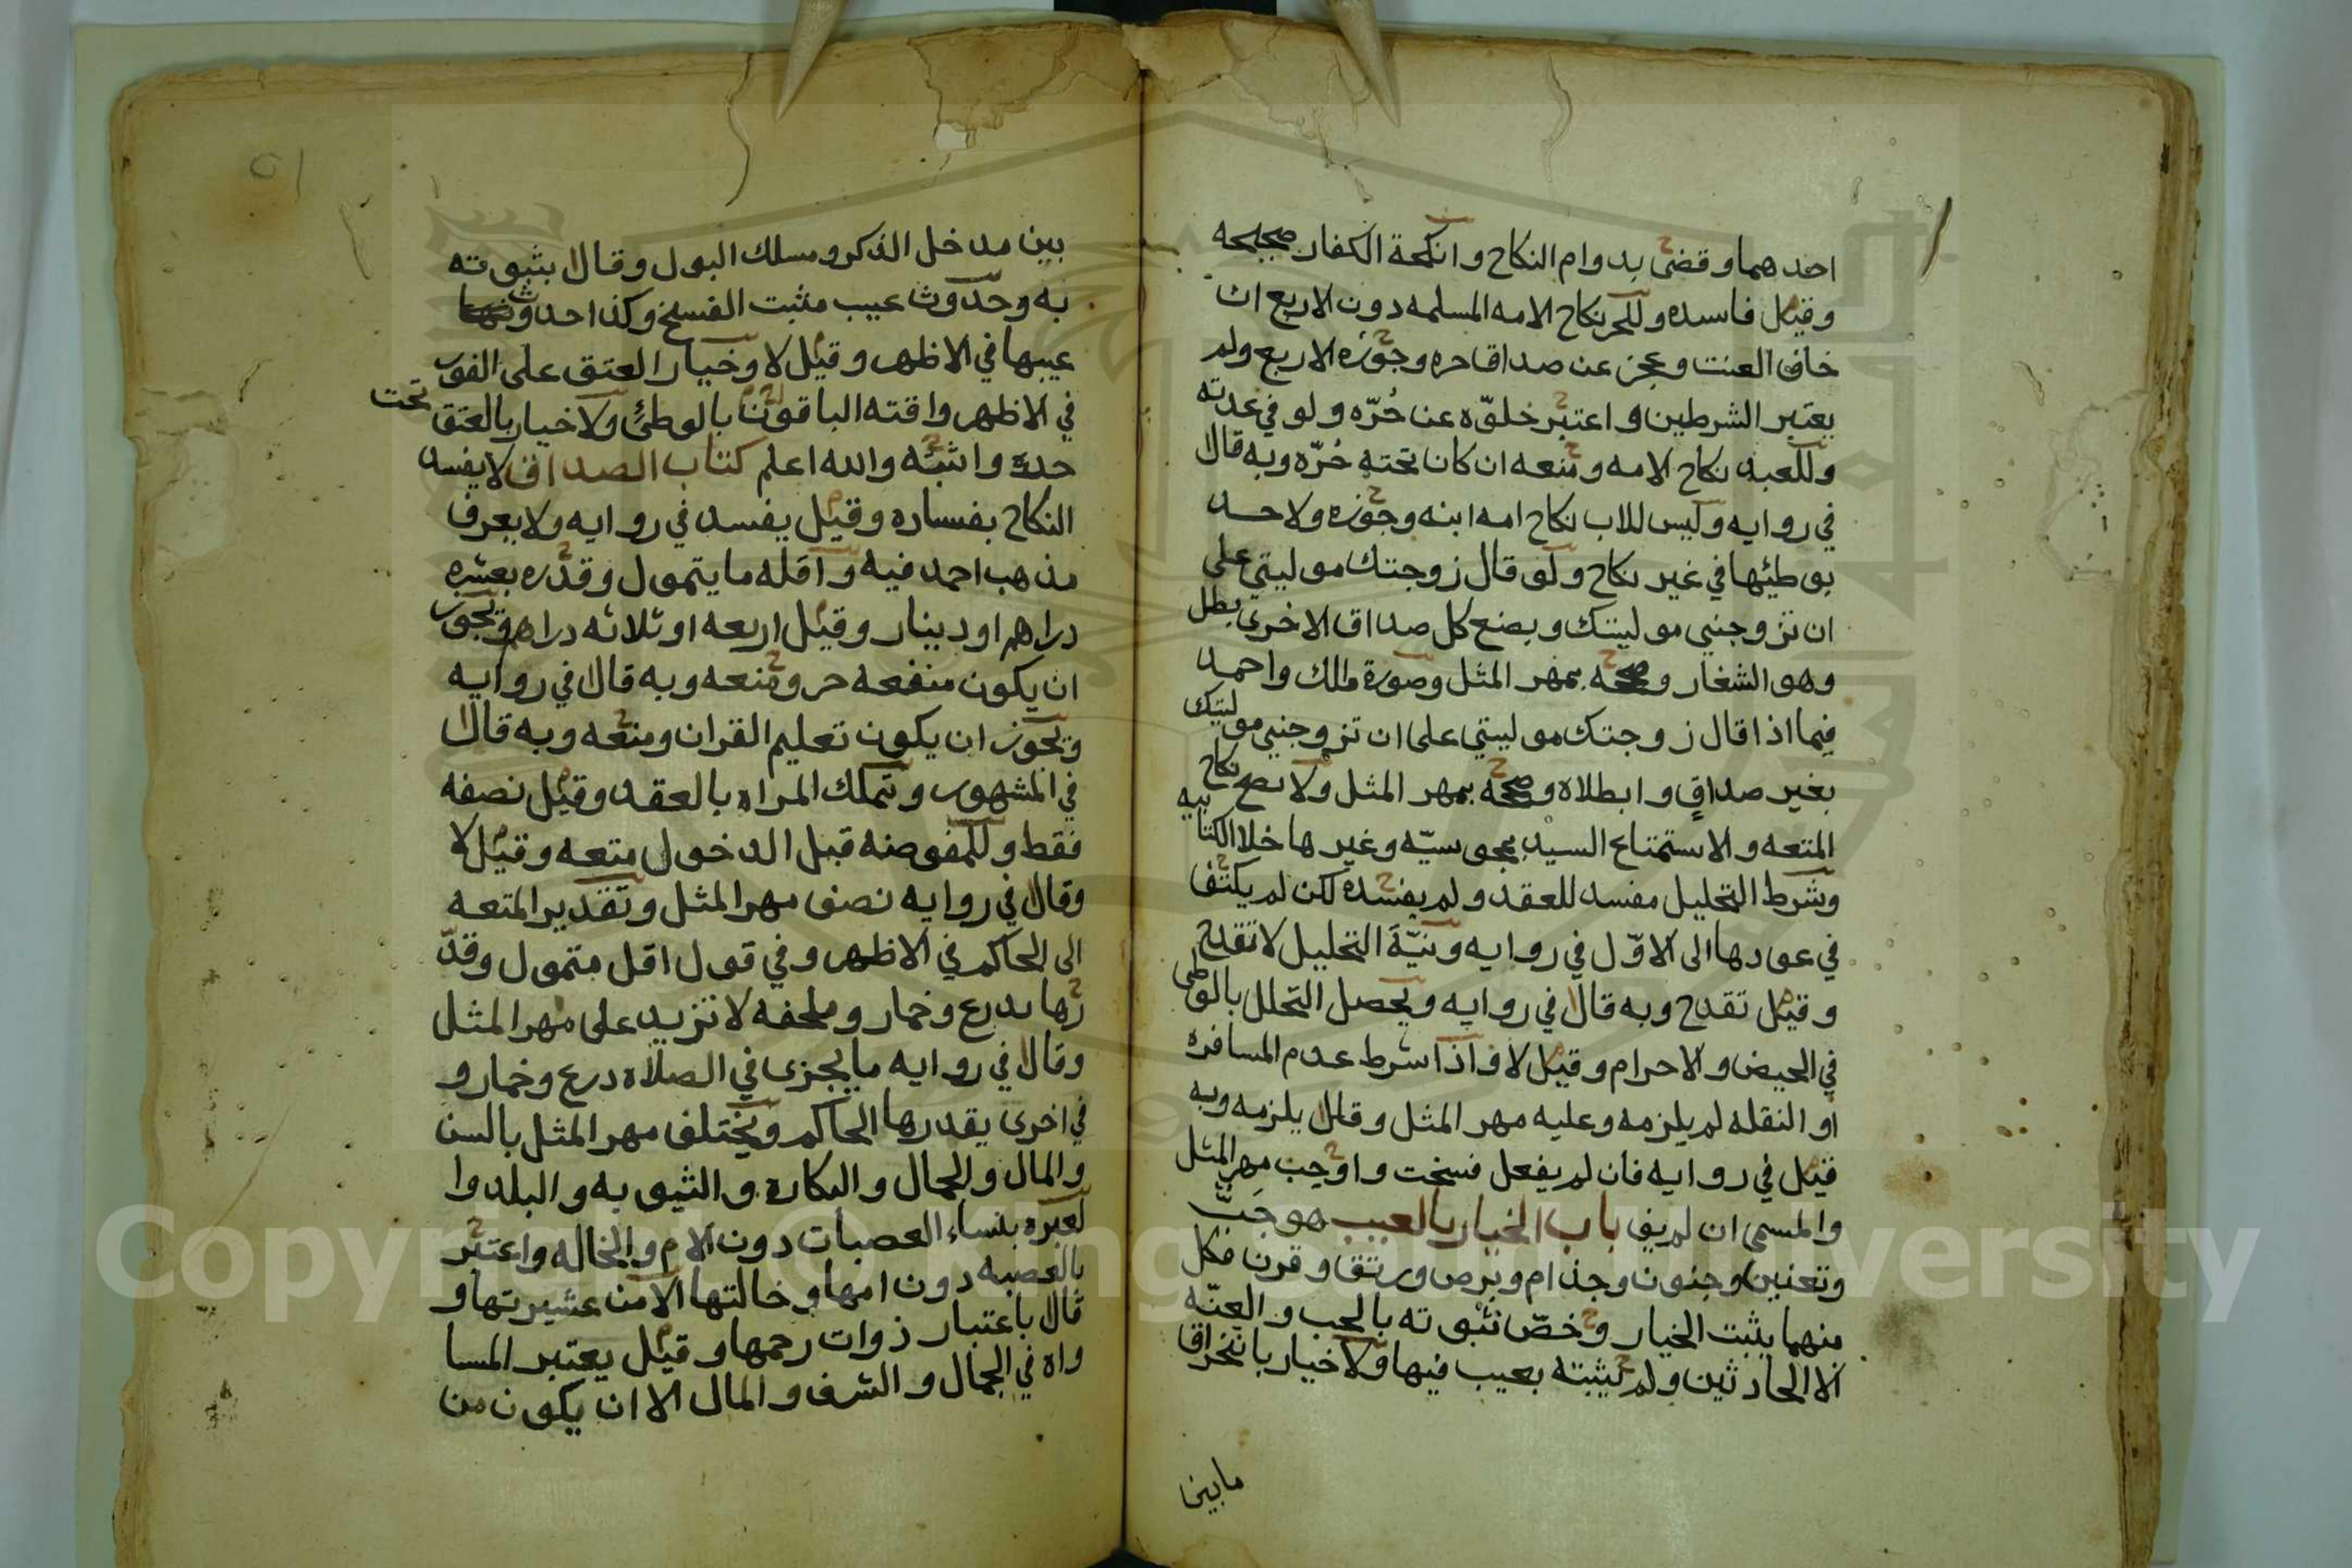 احدهما وقضى بدوام النكاح وانكحة الكفار صحيحه
وقيل فاسده وللحر نكاح الامه المسلمه دون الاربع ان
خاف العنت وعجز عن صداق حره وجوزه الاربع ولم
يعتبر الشرطين واعتبر خلوه عن حُرّه ولو في عدته
وللعبد نكاح الامه ومنعه ان كان تحته حُرّه وبه قال
في روايه وليس للاب نكاح امه ابنه وجوزه ولا حد
بوطئها في غير نكاح ولو قال زوجتك موليتي على
ان تزوجني موليتك وبضع كل صداق الاخرى بطل
وهو الشغار وصححه بمهر المثل وصورة مالك واحمد
فيما اذا قال زوجتك موليتي على ان تزوجني موليتك
بغير صداقٍ وابطلاه وصححه بمهر المثل ولا نصح نكاح
المتعه والاستمتاع السيد بمجوسيّه وغيرها خلا الكتابيه
وشرط التحليل مفسد للعقد ولم يفسده لكن لم يكتف
في عودها الى الاوّل في روايه ونيّة التحليل لا تقدح
وقيل تقدح وبه قال في روايه ويحصل التحلل بالوطى
في الحيض والاحرام وقيل لا فاذا شرط عدم المسافره
او النقله لم يلزمه وعليه مهر المثل وقال يلزمه وبه
قيل في روايه فان لم يفعل فسخت واوجب مهر المثل
والمسمى ان لم يف باب الخيار بالعيب هو جَبّ
وتعنين وجنون وجذام وبرص ورتق وقرن فكل
منهما يثبت الخيار وخصّ ثبوته بالجب والعنّه
الا الحادثين ولم يثبته بعيب فيها ولا خيار بانخراق
مابين
٥١
بين مدخل الذكر ومسلك البول وقال بثبوته
به وحدوث عيب مثبت الفسخ وكذا حدوث
عيبها في الاظهر وقيل لا وخيار العتق على الفور
في الاظهر واقته الباقون بالوطئ ولا خيار بالعتق تحت
حره واثبته والله اعلم كتاب الصداق لا يفسد
النكاح بفساده وقيل يفسد في روايه ولا يعرف
مذهب احمد فيه واقله ما يتمول وقدره بعشره
دراهم او دينار وقيل اربعه او ثلاثه دراهم ويجوز
ان يكون منفعه حر ومنعه وبه قال في روايه
ويجوز ان يكون تعليم القران ومنعه وبه قال
في المشهور وتملك المراه بالعقد وقيل نصفه
فقط وللمفوضه قبل الدخول متعه وقيل لا
وقال في روايه نصف مهر المثل وتقدير المتعه
الى الحاكم في الاظهر وفي قول اقل متمول وقدّ
رها بدرع وخمار وملحفه لا تزيد على مهر المثل
وقال في روايه ما يجزى في الصلاه درع وخمار و
في اخرى يقدرها الحاكم ويختلف مهر المثل بالسن
والمال والجمال والبكاره والثيوبه والبلد وا
لعبره بنساء العصبات دون الام والخاله واعتبر
بالعصبه دون امها وخالتها الا من عشيرتها و
قال باعتبار ذوات رحمها وقيل يعتبر المسا
واه في الجمال والشرف والمال الا ان يكون من
Copyright © King Saud University